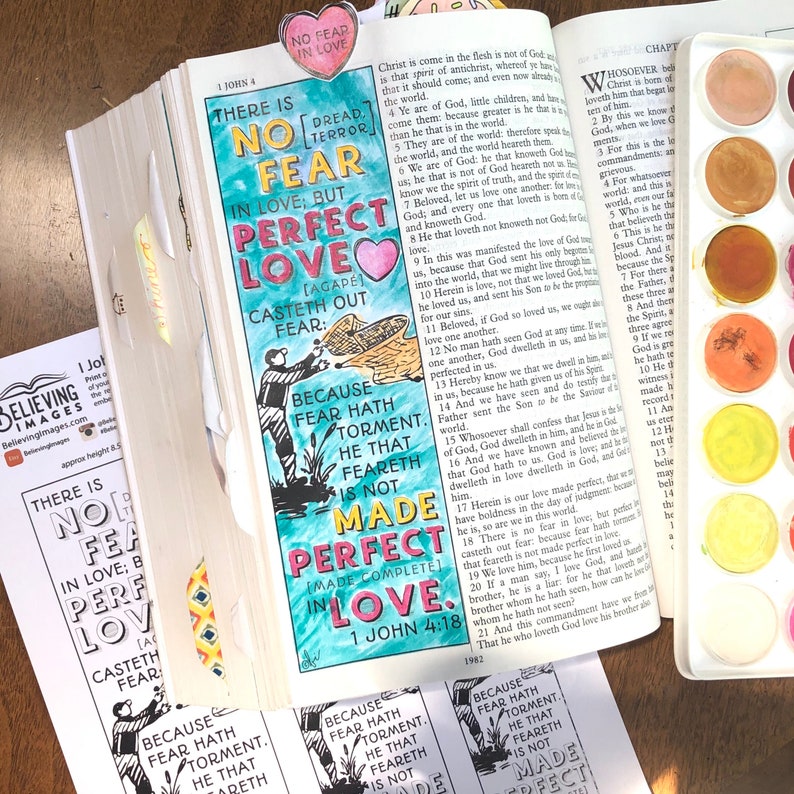 NO FEAR
IN LOVE
1 JOHN 4
THERE IS
NO [DREAD, TERROR]
FEAR
IN LOVE; BUT
PERFECT
LOVE
[AGAPÉ]
CASTETH OUT
FEAR:
BECAUSE
FEAR HATH
TORMENT.
HE THAT
FEARETH
IS NOT
MADE
PERFECT
[MADE COMPLETE]
IN LOVE.
1 JOHN 4:18
Christ is come in the flesh is not of God: and
is that spirit of antichrist, whereof ye have
that it should come; and even now already is
the world.
4 Ye are of God, little children, and have
come them: because greater is he that is
than he that is in the world.
5 They are of the world: therefore speak they
the world, and the world heareth them.
6 We are of God: he that knoweth God
us; he that is not of God heareth not us. Her
know we the spirit of truth, and the spirit of
7 Beloved, let us love one another: for love
God; and every one that loveth is born of
and knoweth God.
8 He that loveth not knoweth not God; for God
love.
9 In this was manifested the love of God
us, because that God sent his only begotten
into the world, that we might live through him.
10 Herein is love, not that we loved God, but
he loved us, and sent his Son to be the propitia
for our sins.
11 Beloved, if God so loved us, we ought
love one another.
12 No man hath seen God at any time. If we
one another, God dwelleth in us, and his love
perfected in us.
13 Hereby know we that we dwell in him, and
in us, because he hath given us of his Spirit.
14 And we have seen and do testify that
Father sent the Son to be the Saviour of
world.
15 Whosoever shall confess that Jesus is the
of God, God dwelleth in him, and he in God.
16 And we have known and believed the
that God hath to us. God is love; and he
dwelleth in love dwelleth in God, and God
him.
17 Herein is our love made perfect, that we
have boldness in the day of judgment: because
he is, so are we in this world.
18 There is no fear in love; but perfect
casteth out fear: because fear hath torment.
that feareth is not made perfect in love.
19 We love him, because he first loved us.
20 If a man say, I love God, and hateth
brother, he is a liar: for he that loveth not
brother whom he hath seen, how can he love
whom he hath not seen?
21 And this commandment have we from
That he who loveth God love his brother also.
1982
CHAPT
WHOSOEVER
Christ is born of
loveth him that begat
ten of him.
2 By this we know
God, when we love
ments.
3 For this is the
commandments: and
grievous.
4 For whatsoever
world: and this is
world, even our
5 Who is he
that believeth
6 This is he
Jesus Christ;
blood. And it
because the Spi
7 For there
the Father,
these three
8 And
the Spirit,
three agree
9 If we
God is
he hath
10 He
witness
BELIEVING
IMAGES
BelievingImages.com
Etsy BelievingImages
approx height 8.5
THERE IS
NO
FEAR
IN LOVE; BUT
PERFE
LOVE
CASTETH
FEAR:
BECAUSE
FEAR HATH
TORMENT.
HE THAT
FEARETH
BECAUSE
FEAR HATH
TORMENT.
HE THAT
FEARETH
IS NOT
MADE
BECAUSE
FEAR HATH
TORMENT.
HE THAT
FEARETH
IS NOT
MADE
PERFECT